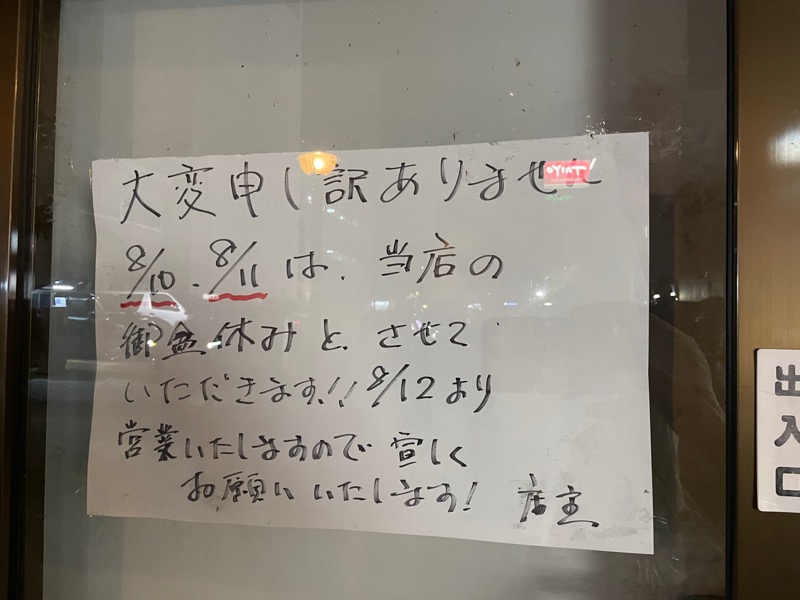 大変申し訳ありません
8/10.8/11は、当店の
御盆休みと、させて
いただきます!! 8/12より
営業いたしますので 宜しく
お願い いたします! 店主
TAIYO
出入口